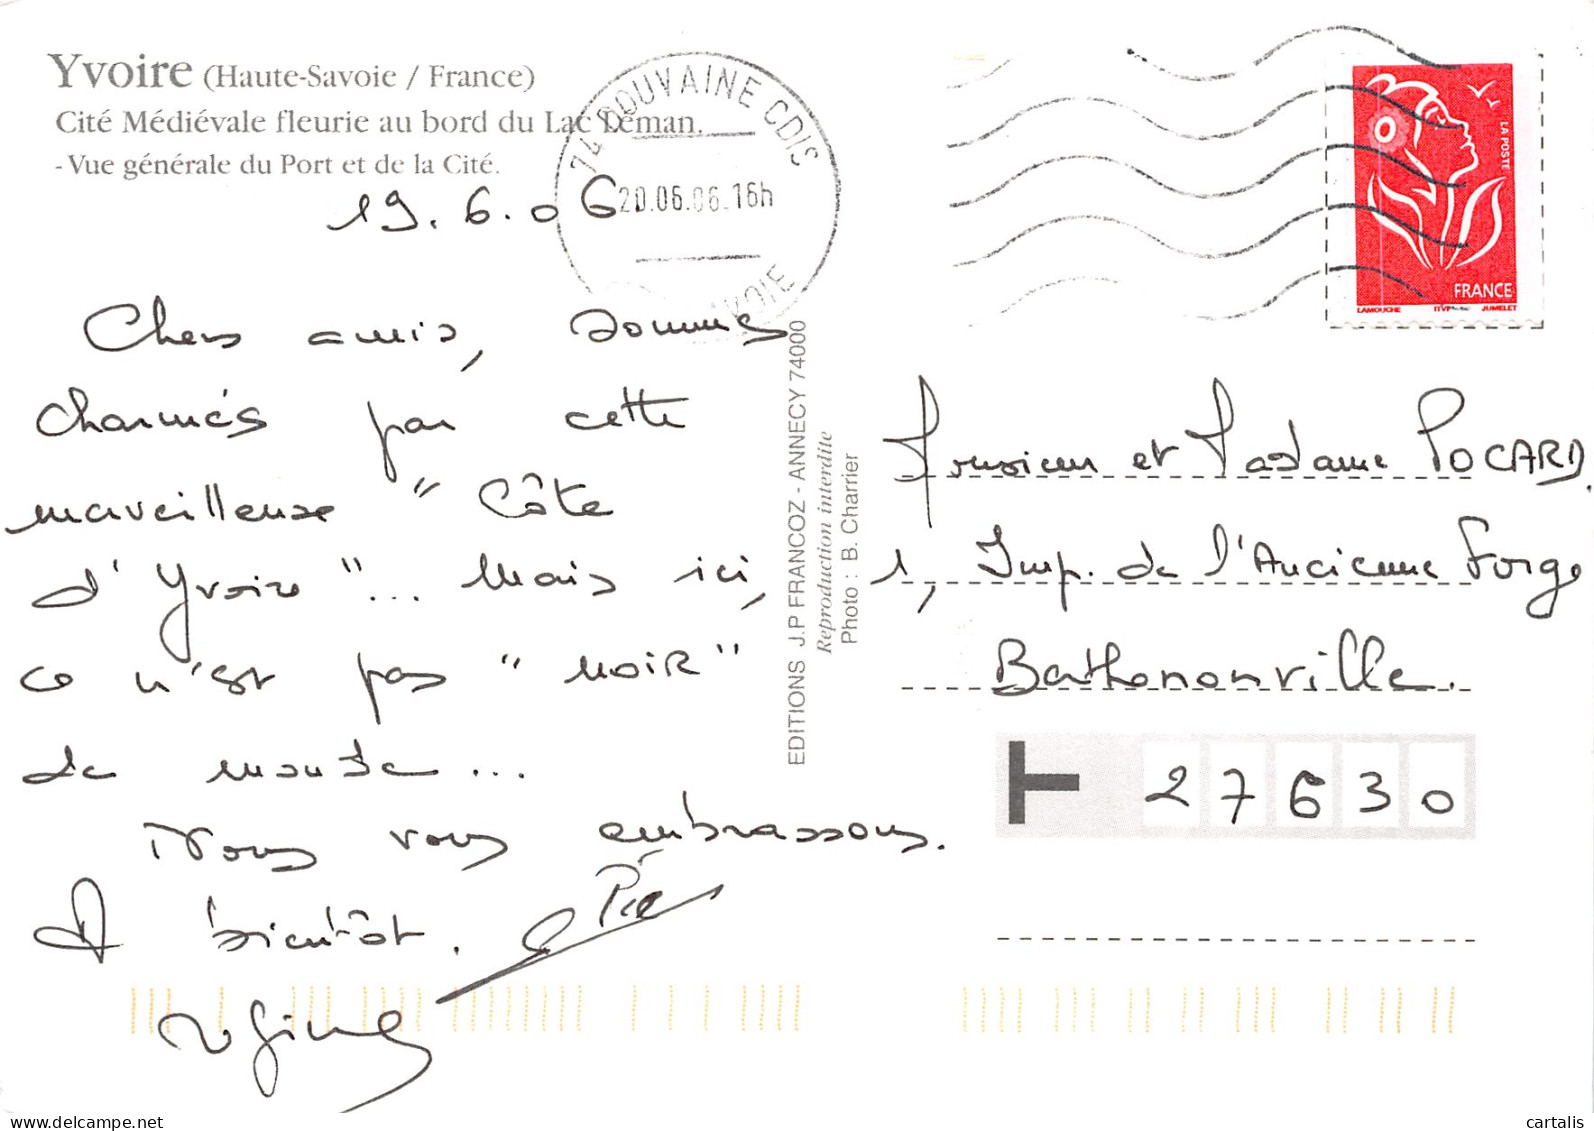 Yvoire (Haute-Savoie / France)
Cité Médiévale fleurie au bord du Lac Léman.
- Vue générale du Port et de la Cité.
19.6.06
74 DOUVAINE CDIS
20.06.06.16h
Chers amis, sommes
charmés par cette
merveilleuse "Côte
d'Yvoire"... Mais ici,
ce n'est pas "noir"
de monde...
Nous vous embrassons.
A bientôt.
EDITIONS J.P FRANCOZ - ANNECY 74000
Reproduction interdite
Photo : B. Charrier
LA POSTE
FRANCE
LAMOUCHE ITVF JUMELET
Monsieur et Madame POCARD.
1, Imp. de l'Ancienne Forge
Berthenonville.
27630
cartalis